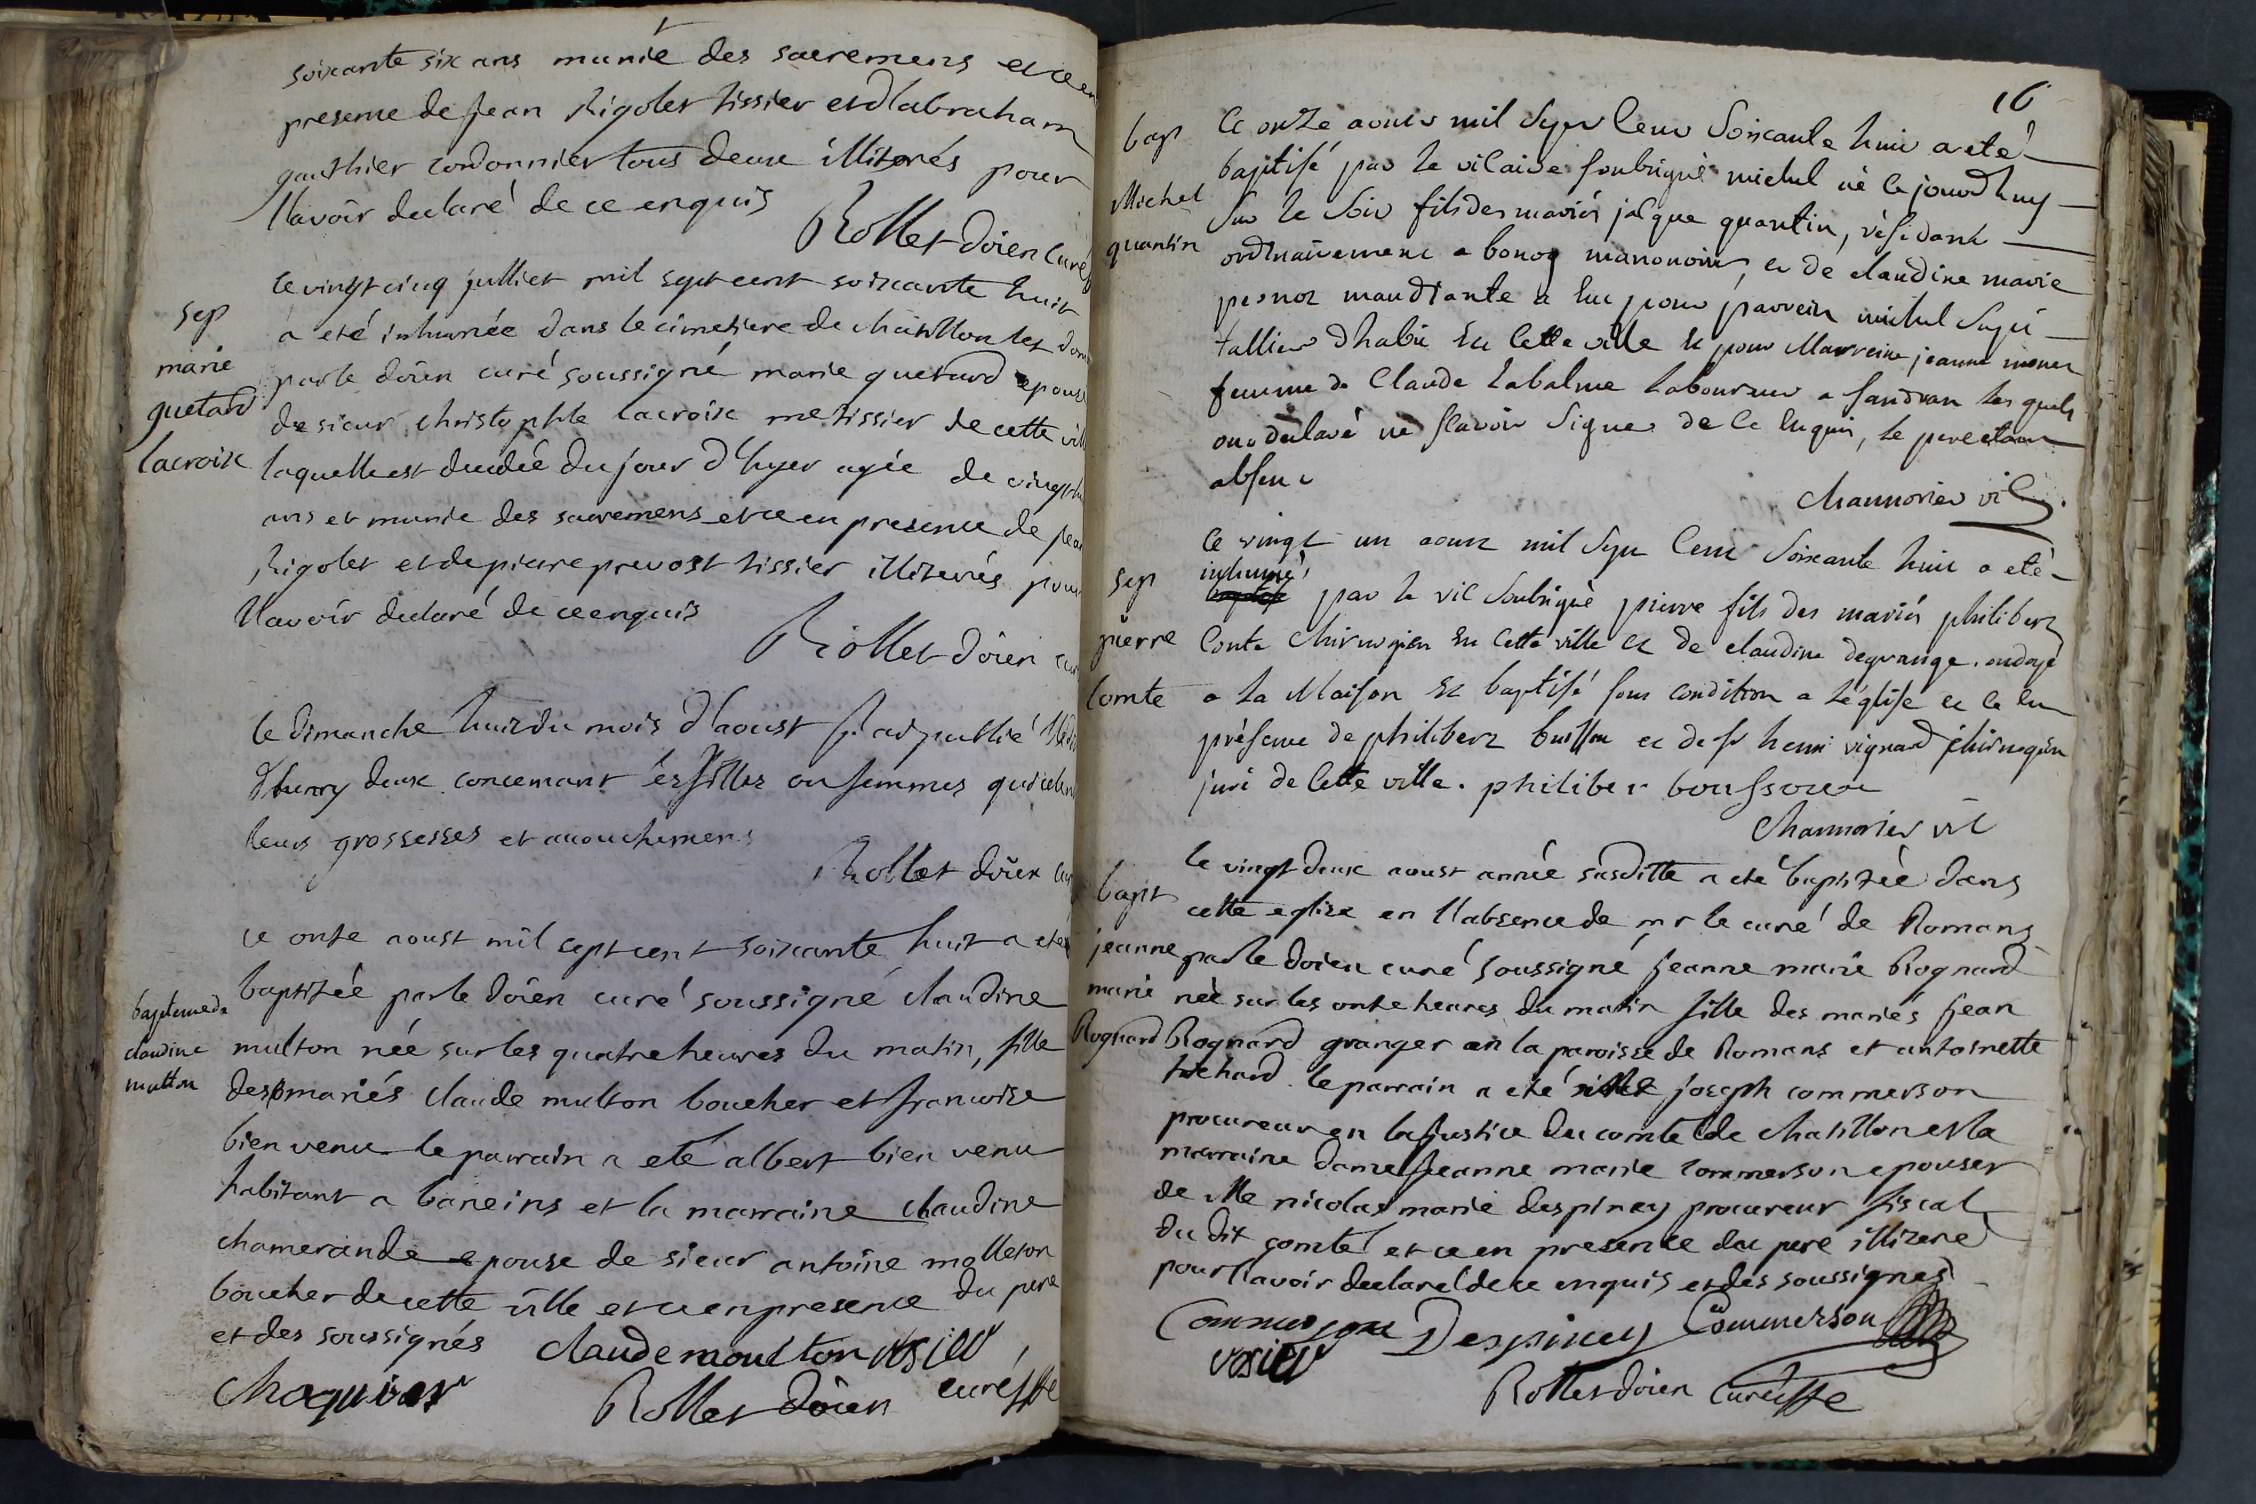 soixante six ans munie des sacremens et ce en
presence de jean Rigolet tissier et d'abraham
gauthier cordonnier tous deux illiterés pour
l'avoir declaré de ce enquis
Rollet doïen curé
sep
marie
guetard
lacroix
le vingt cinq juilliet mil sept cent soixante huit
a eté inhumée dans le cimetiere de chatillon les
par le doïen curé soussigné marie guetard epouse
de sieur christophle lacroix me tissier de cette ville
laquelle est decedée du jour d'hyer agée de vingt
ans et munie des sacremens et ce en presence de jean
Rigolet et de pierre prevost tissier illiterés pour
l'avoir declaré de ce enquis
Rollet doïen curé
le dimanche huit du mois d'aoust j'ai publié
d'henry deux concernant les filles ou femmes qui celent
leurs grossesses et accouchemens
Rollet doïen curé
bapteme de
claudine
multon
ce onze aoust mil sept cent soixante huit a eté
baptizée par le doïen curé soussigné claudine
multon née sur les quatre heures du matin, fille
des mariés claude multon boucher et francoise
bien venu le parrain a eté albert bien venu
habitant a baneins et la marraine claudine
chamerande epouse de sieur antoine molleton
boucher de cette ville et ce en presence du pere
et des soussignés claude moulton
Rollet doïen curé
16
bap
Michel
quantin
Ce onze aout mil sept cent Soixante huit a eté
baptisé par le vicaire soubsigné michel né ce jourdhuy
Sur le soir fils des mariés jacque quantin, résidant
ordinairement a manouvrier, et de claudine marie
mandiante a eu pour parrein michel
tallieur d'habit en cette ville et pour Marreine jeanne
femme de Claude Labalme laboureur a sandran les quels
ont declaré ne scavoir signer de ce enquis, le pere etant
absent
Channorier vic
sep
pierre
comte
Ce vingt un aout mil sept cent soixante huit a eté
inhumé par le vic soubsigné pierre fils des mariés philibert
Conte chirurgien en cette ville et de claudine degrange. ondoyé
a la Maison et baptisé sous condition a l'église et ce en
présence de philibert et de sr henri vignard chirurgien
juré de cette ville. philiber
Channorier vic
bapt
jeanne
marie
Rognard
le vingt deux aoust année susditte a eté baptizée dans
cette eglise en l'absence de mr le curé de Romans
par le doïen curé soussigné jeanne marie Rognard
née sur les onze heures du matin fille des mariés jean
Rognard granger en la paroisse de Romans et antoinette
trichard. le parrain a eté joseph commerson
procureur en la justice du comté de chatillon et la
marraine dame jeanne marie commerson epouser
de Me nicolas marie despiney procureur fiscal
du dit comté et ce en presence du pere illiteré
pour l'avoir declaré de ce enquis et des soussignés
Commerson Despiney Commerson
Rollet doïen curé